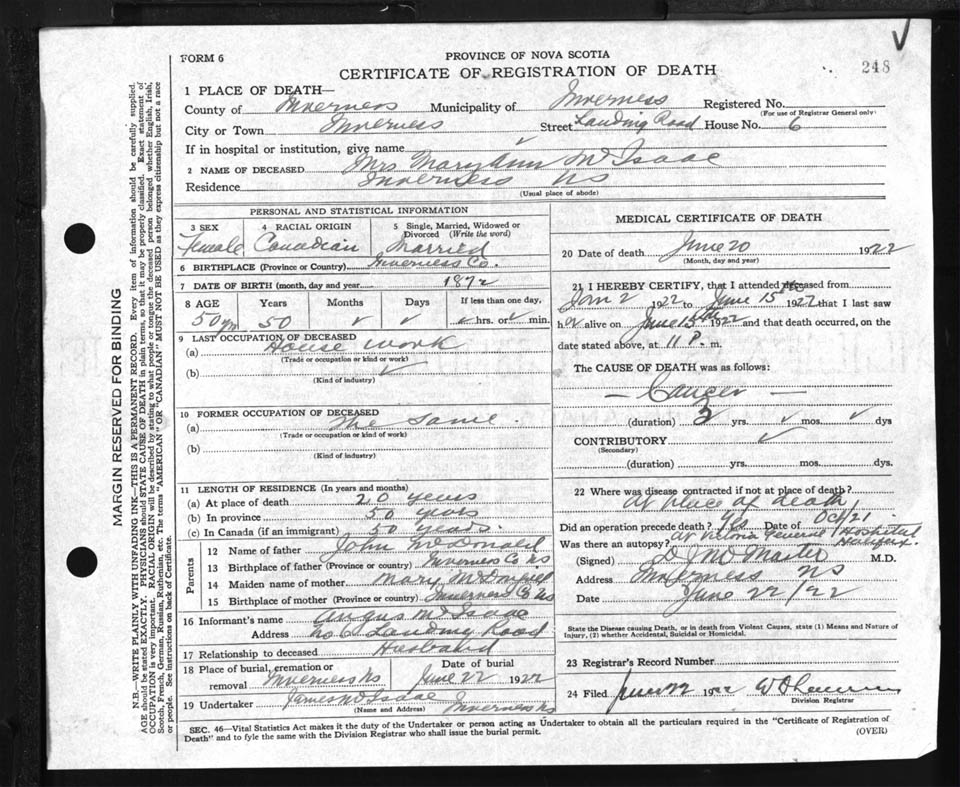 FORM 6
PROVINCE OF NOVA SCOTIA
CERTIFICATE OF REGISTRATION OF DEATH
248
1 PLACE OF DEATH—
County of Inverness Municipality of Inverness Registered No.
(For use of Registrar General only)
City or Town Inverness Street Landing Road House No. 6
If in hospital or institution, give name
2 NAME OF DECEASED Mrs Mary Ann McIsaac
Residence Inverness NS
(Usual place of abode)
PERSONAL AND STATISTICAL INFORMATION
3 SEX 4 RACIAL ORIGIN 5 Single, Married, Widowed or Divorced (Write the word)
Female Canadian Married
6 BIRTHPLACE (Province or Country) Inverness Co.
7 DATE OF BIRTH (month, day and year) 1872
8 AGE Years Months Days If less than one day,
50 yrs 50 ✓ ✓ ✓ hrs. or ✓ min.
9 LAST OCCUPATION OF DECEASED
(a) House work
(Trade or occupation or kind of work)
(b) ✓
(Kind of industry)
10 FORMER OCCUPATION OF DECEASED
(a) The same
(Trade or occupation or kind of work)
(b)
(Kind of industry)
11 LENGTH OF RESIDENCE (In years and months)
(a) At place of death 20 years
(b) In province 50 years
(c) In Canada (if an immigrant) 50 years.
Parents
12 Name of father John McDonald
13 Birthplace of father (Province or country) Inverness Co NS
14 Maiden name of mother Mary
15 Birthplace of mother (Province or country) Inverness Co NS
16 Informant's name Angus McIsaac
Address No 6 Landing Road
17 Relationship to deceased Husband
18 Place of burial, cremation or removal Inverness NS Date of burial June 22 1922
19 Undertaker James McIsaac Inverness NS
(Name and Address)
MEDICAL CERTIFICATE OF DEATH
20 Date of death June 20 1922
(Month, day and year)
21 I HEREBY CERTIFY, that I attended deceased from
Jan 2 1922 to June 15th 1922 that I last saw
her alive on June 15th 1922 and that death occurred, on
date stated above, at 11 P. m.
The CAUSE OF DEATH was as follows:
— Cancer —
(duration) 2 yrs. ✓ mos. ✓ dys
CONTRIBUTORY ✓
(Secondary)
(duration) yrs. mos. dys.
22 Where was disease contracted if not at place of death?
At place of death
Did an operation precede death? Yes Date of Oct/21
Was there an autopsy? At Victoria General Hospital Halifax.
(Signed) M.D.
Address Inverness NS
Date June 22/22
State the Disease causing Death, or in death from Violent Causes, state (1) Means and Nature of
Injury, (2) whether Accidental, Suicidal or Homicidal.
23 Registrar's Record Number
24 Filed June 22 1922
Division Registrar
SEC. 46—Vital Statistics Act makes it the duty of the Undertaker or person acting as Undertaker to obtain all the particulars required in the "Certificate of Registration of
Death" and to fyle the same with the Division Registrar who shall issue the burial permit.
(OVER)
MARGIN RESERVED FOR BINDING
N.B.—WRITE PLAINLY WITH UNFADING INK—THIS IS A PERMANENT RECORD. Every item of information should be carefully supplied.
AGE should be stated EXACTLY. PHYSICIANS should STATE CAUSE OF DEATH in plain terms, so that it may be properly classified. Exact statement of
OCCUPATION is very important. RACIAL ORIGIN will be described by stating to what people or tongue the deceased person belonged whether English, Irish,
Scotch, French, German, Russian, Ruthenian, etc. The terms "AMERICAN" OR "CANADIAN" MUST NOT BE USED as they express citizenship but not a race
or people. See instructions on back of Certificate.